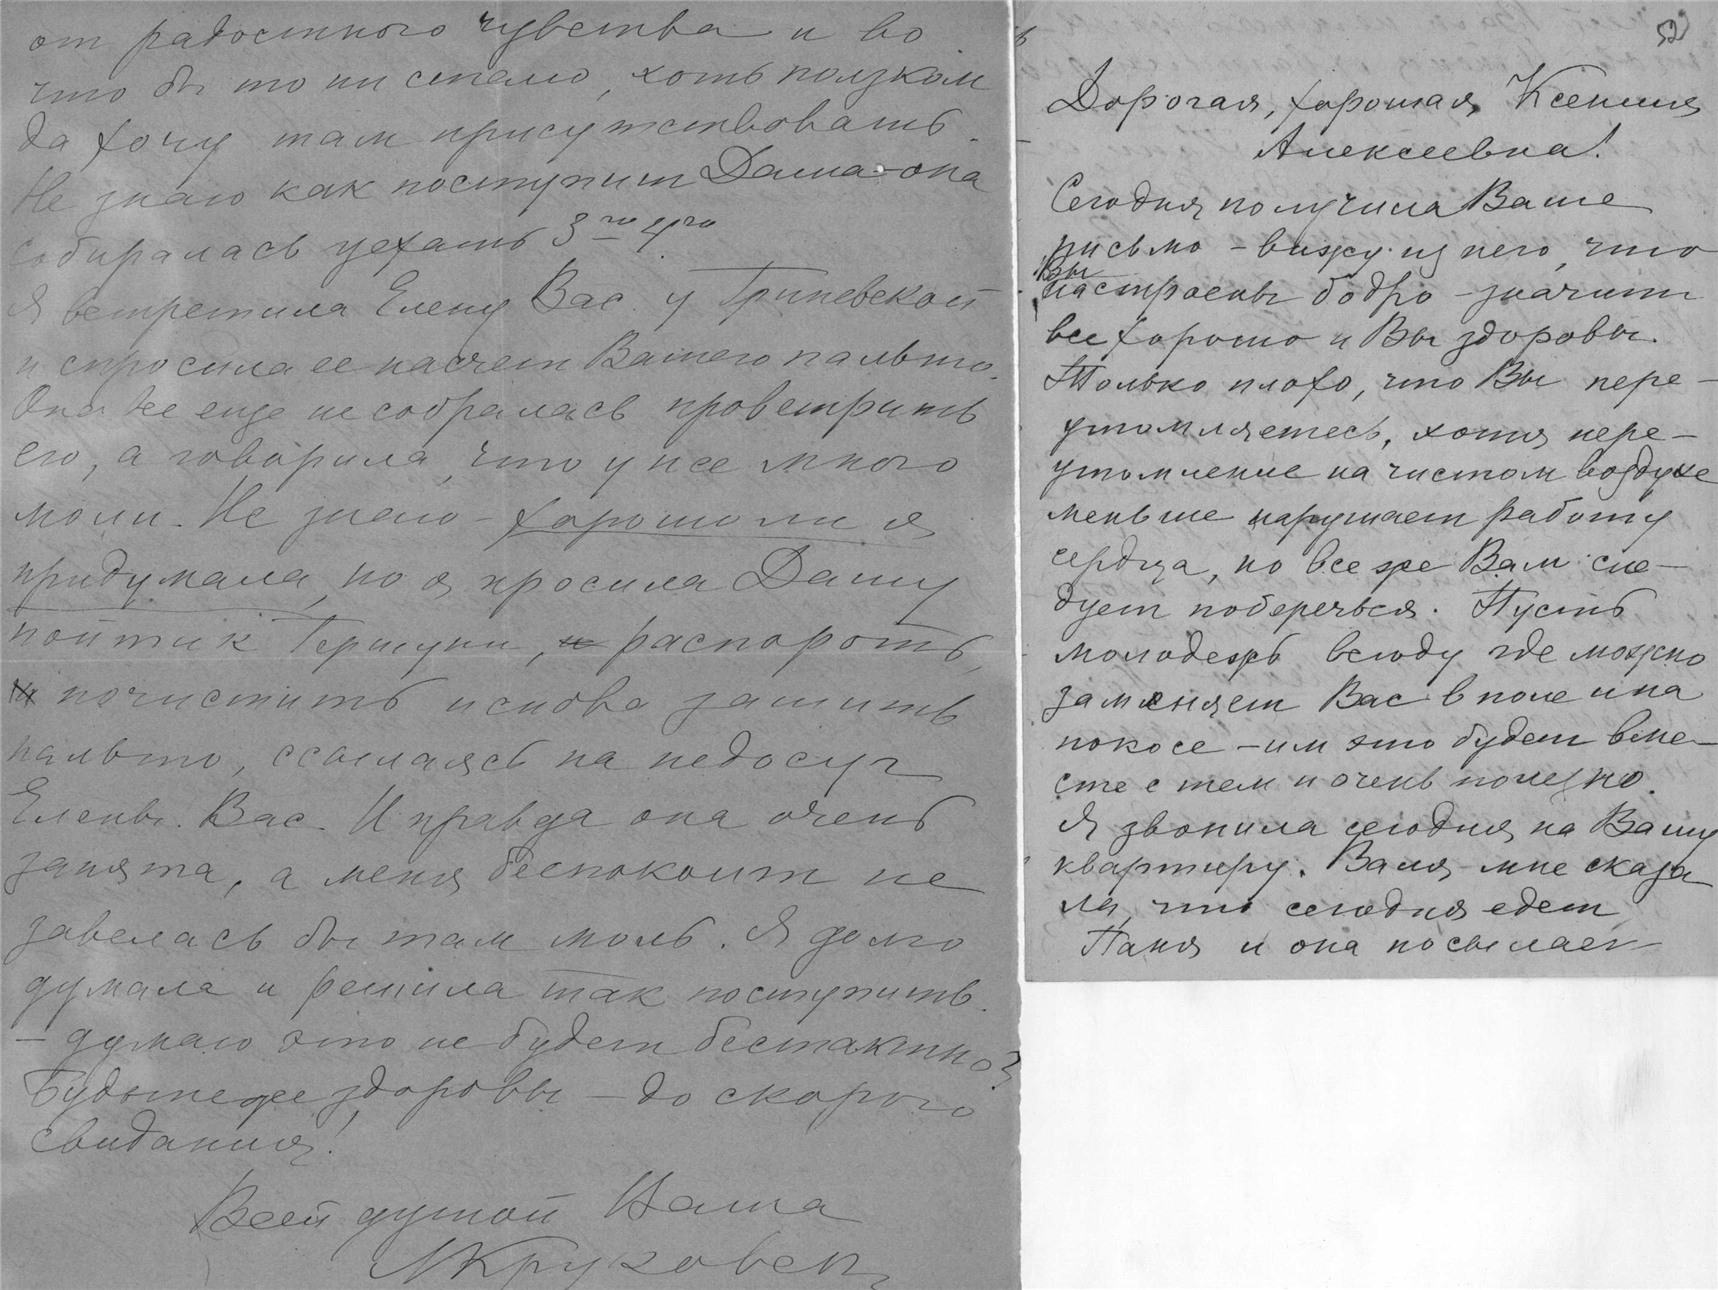 от радостного чувства и во
что бы то ни стало, хоть ползком
да хочу там присутствовать.
Не знаю как поступит Даша - она
собиралась уехать 3го 4го
Я встретила Елену Вас. у Гриневской
и спросила ее насчет Вашего пальто.
Она же еще не собралась проветрить
его, а говорила, что у нее много
моли. Не знаю - хорошо ли я
придумала, но я просила Дашу
пойти к Гершуни, и распороть,
и почистить и снова зашить
пальто, ссылаясь на недосуг
Елены Вас. И правда она очень
занята, а меня беспокоит не
завелась бы там моль. Я долго
думала и решила так поступить.
- думаю это не будет бестактно?
Будьте же здоровы - до скорого
свидания!
Всей душой Ваша
52
Дорогая, хорошая, Ксения
Алексеевна!
Сегодня получила Ваше
письмо - вижу из него, что
Вы
настроены бодро - значит
все хорошо и Вы здоровы.
Только плохо, что Вы пере-
утомляетесь, хотя пере-
утомление на чистом воздухе
меньше нарушает работу
сердца, но все же Вам сле-
дует поберечься. Пусть
молодежь всюду где можно
заменяет Вас в поле и на
покосе - им это будет вме-
сте с тем и очень полезно.
Я звонила сегодня на Вашу
квартиру. Валя мне сказа
ла, что сегодня едет
Паня и она посылает